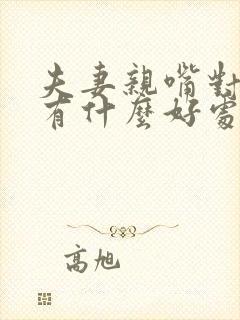 夫妻親嘴對
有什麼好處
高旭